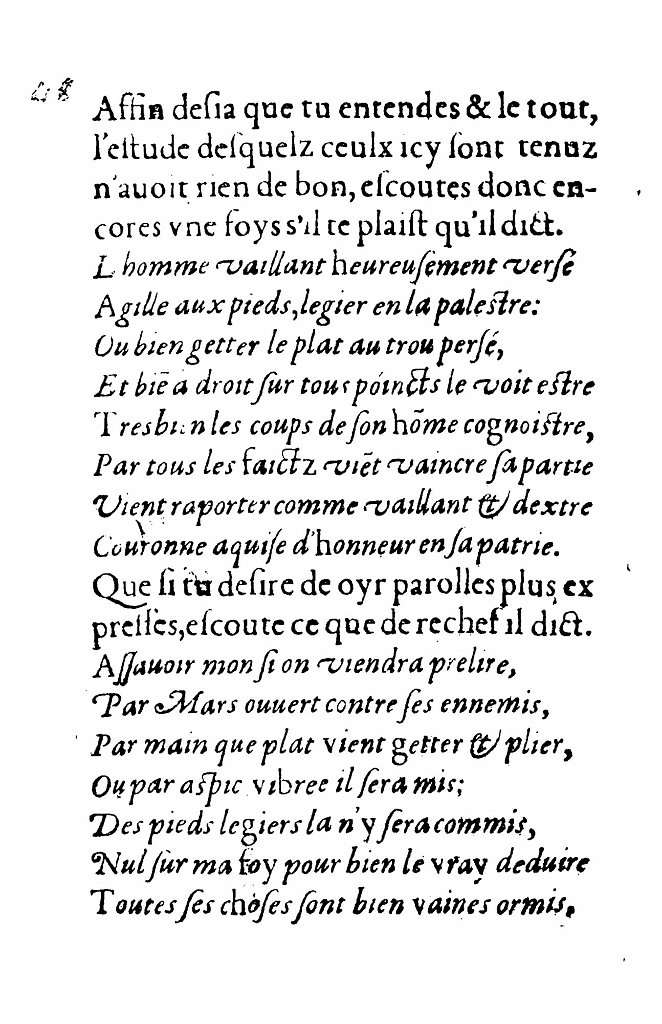 Affin desia que tu entendes & le tout,
l'estude desquelz ceulx icy sont tenuz
n'auoit rien de bon, escoutes donc en-
cores vne foys s'il te plaist qu'il dict.
L homme vaillant heureusement versé
Agille aux pieds, legier en la palestre:
Ou bien getter le plat au trou persé,
Et biē a droit sur tous póincts le voit estre
Tresbien les coups de son hōme cognoistre,
Par tous les faictz viēt vaincre sa partie
Vient raporter comme vaillant & dextre
Couronne aquise d'honneur en sa patrie.
Que si tu desire de oyr parolles plus ex
presses, escoute ce que de rechef il dict.
Assauoir mon si on viendra prelire,
Par Mars ouuert contre ses ennemis,
Par main que plat vient getter & plier,
Ou par aspic vibree il sera mis;
Des pieds legiers la n'y sera commis,
Nul sur ma foy pour bien le vray deduire
Toutes ses choses sont bien vaines ormis,